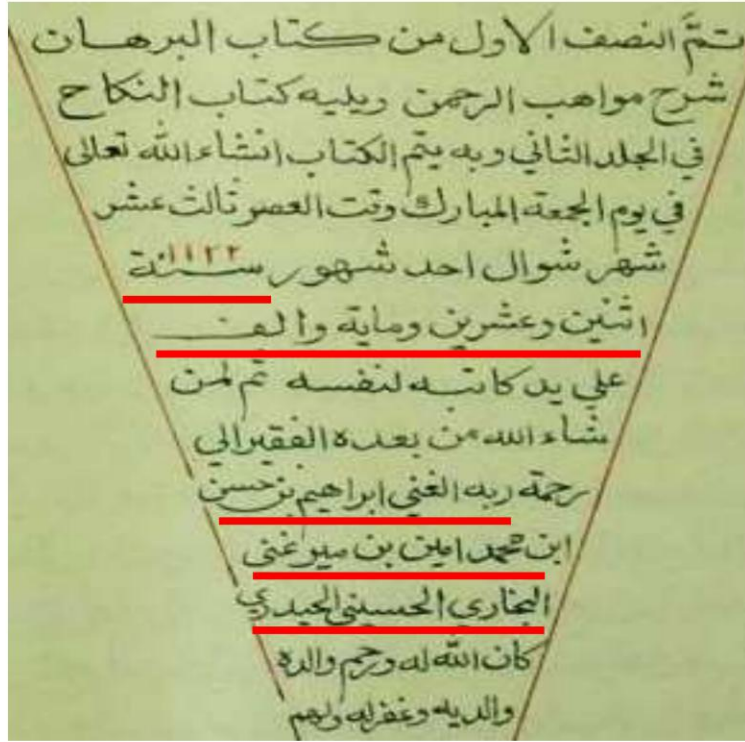 تمَّ النصف الاول من كتاب البرهان
شرح مواهب الرحمن ويليه كتاب النكاح
في الجلد الثاني وبه يتم الكتاب انشاء الله تعالى
في يوم الجمعة المبارك وقت العصر ثالث عشر
شهر شوال احد شهور سنة ١١٢٢
اثنين وعشرين وماية والف
علي يد كاتبه لنفسه ثم لمن
شاء الله من بعده الفقير الي
رحمة ربه الغني ابراهيم بن حسن
ابن محمد امين بن مير غني
البخاري الحسيني الحيدري
كان الله له ورحم والده
والديه وغفر له ولهم